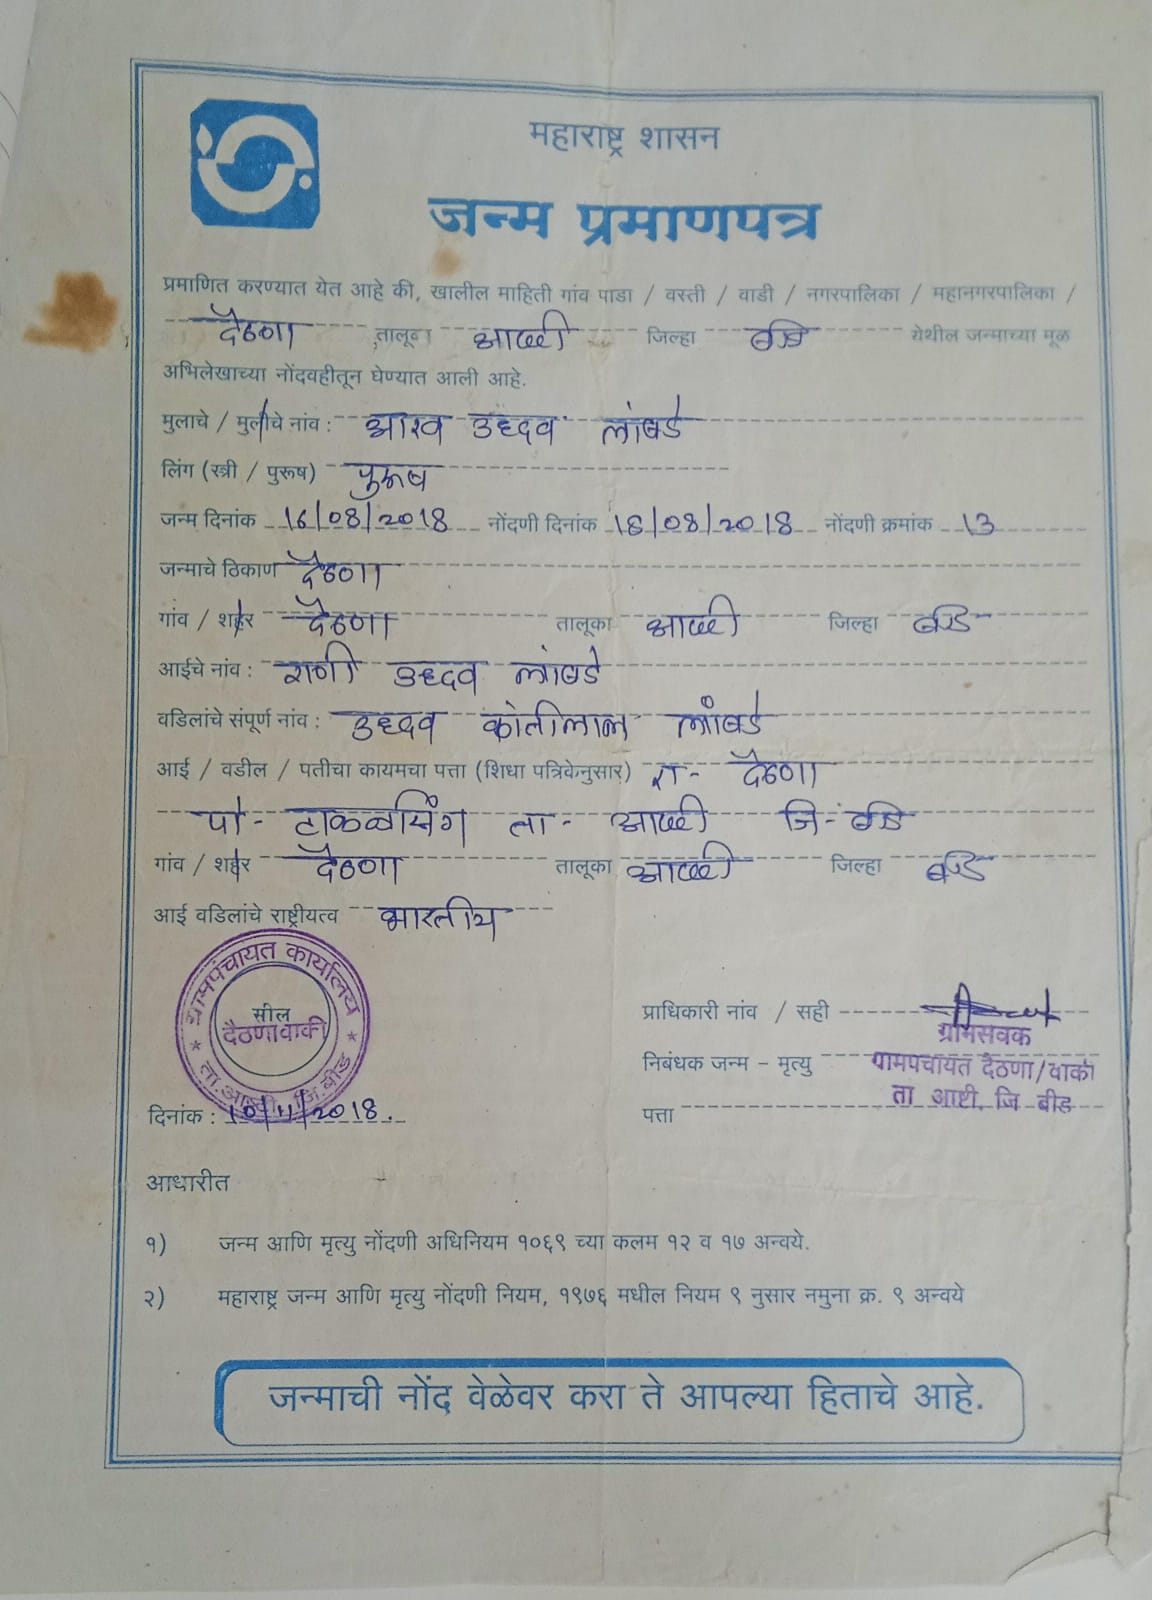 महाराष्ट्र शासन
जन्म प्रमाणपत्र
प्रमाणित करण्यात येत आहे की, खालील माहिती गांव पाडा / वस्ती / वाडी / नगरपालिका / महानगरपालिका /
दैठणा तालूका आष्टी जिल्हा बीड येथील जन्माच्या मूळ
अभिलेखाच्या नोंदवहीतून घेण्यात आली आहे.
मुलाचे / मुलीचे नांव : आरव उध्दव लांबडे
लिंग (स्त्री / पुरूष) पुरूष
जन्म दिनांक 16/08/2018 नोंदणी दिनांक 18/08/2018 नोंदणी क्रमांक 13
जन्माचे ठिकाण दैठणा
गांव / शहर दैठणा तालूका आष्टी जिल्हा बीड
आईचे नांव : राणी उध्दव लांबडे
वडिलांचे संपूर्ण नांव : उध्दव कांतीलाल लांबडे
आई / वडील / पतीचा कायमचा पत्ता (शिधा पत्रिकेनुसार) रा- दैठणा
पो- टाकळसिंग ता- आष्टी जि- बीड
गांव / शहर दैठणा तालूका आष्टी जिल्हा बीड
आई वडिलांचे राष्ट्रीयत्व भारतीय
ग्रामपंचायत कार्यालय
सील
दैठणावाकी
ता. आष्टी जि. बीड
प्राधिकारी नांव / सही
ग्रामसेवक
निबंधक जन्म - मृत्यु ग्रामपंचायत दैठणा/वाकी
ता आष्टी. जि बीड
दिनांक : 10/11/2018. पत्ता
आधारीत
१) जन्म आणि मृत्यु नोंदणी अधिनियम १०६९ च्या कलम १२ व १७ अन्वये.
२) महाराष्ट्र जन्म आणि मृत्यु नोंदणी नियम, १९७६ मधील नियम ९ नुसार नमुना क्र. ९ अन्वये
जन्माची नोंद वेळेवर करा ते आपल्या हिताचे आहे.